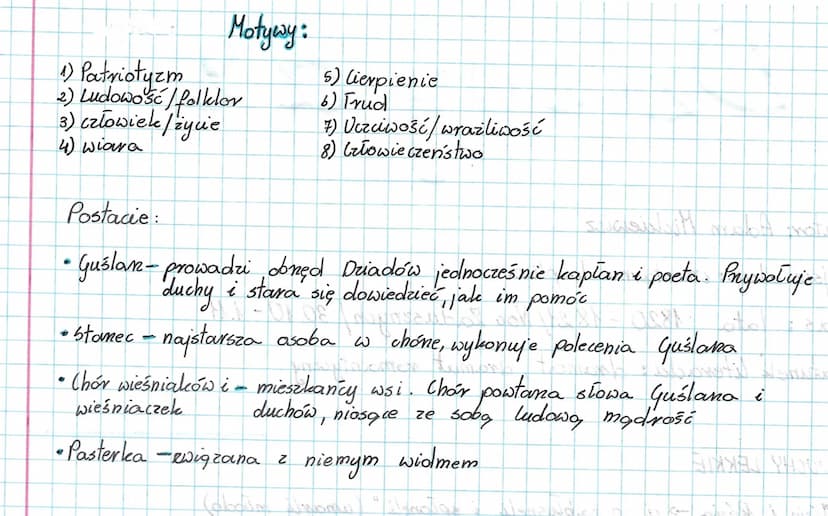 Motywy:
1) Patriotyzm
2) Ludowość/folklor
3) człowiek/życie
4) wiara
5) Cierpienie
6) Trud
7) Uczciwość/wrażliwość
8) Człowieczeństwo
Postacie:
• Guślarz – prowadzi obrzęd Dziadów jednocześnie kapłan i poeta. Przywołuje
duchy i stara się dowiedzieć, jak im pomóc
• Starzec – najstarsza osoba w chórze, wykonuje polecenia Guślarza
• Chór wieśniaków i – mieszkańcy wsi. Chór powtarza słowa Guślarza i
wieśniaczek duchów, niosące ze sobą ludową mądrość
• Pasterka – związana z niemym widmem